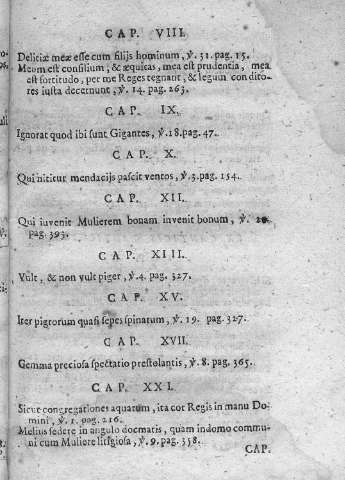 CAP. VIII.
Delitiæ meæ esse cum filijs hominum, ℣. 31. pag. 15.
Meum est consilium, & æquitas, mea est prudentia, mea
est fortitudo, per me Reges regnant, & legum condito-
res iusta decernunt, ℣. 14. pag. 263.
CAP. IX.
Ignorat quod ibi sunt Gigantes, ℣. 18. pag. 47.
CAP. X.
Qui nititur mendacijs pascit ventos, ℣. 3. pag. 154.
CAP. XII.
Qui iuvenit Mulierem bonam invenit bonum, ℣.
pag. 393.
CAP. XIII.
Vult, & non vult piger, ℣. 4. pag. 327.
CAP. XV.
Iter pigrorum quasi sepes spinatum, ℣. 19. pag. 327.
CAP. XVII.
Gemma preciosa spectatio prestolantis, ℣. 8. pag. 365.
CAP. XXI.
Sicut congregationes aquarum, ita cor Regis in manu Do-
mini, ℣. 1. pag. 216.
Melius sedere in angulo docmatis, quam indomo commu-
ni cum Muliere litigiosa, ℣. 9. pag. 358.
CAP.